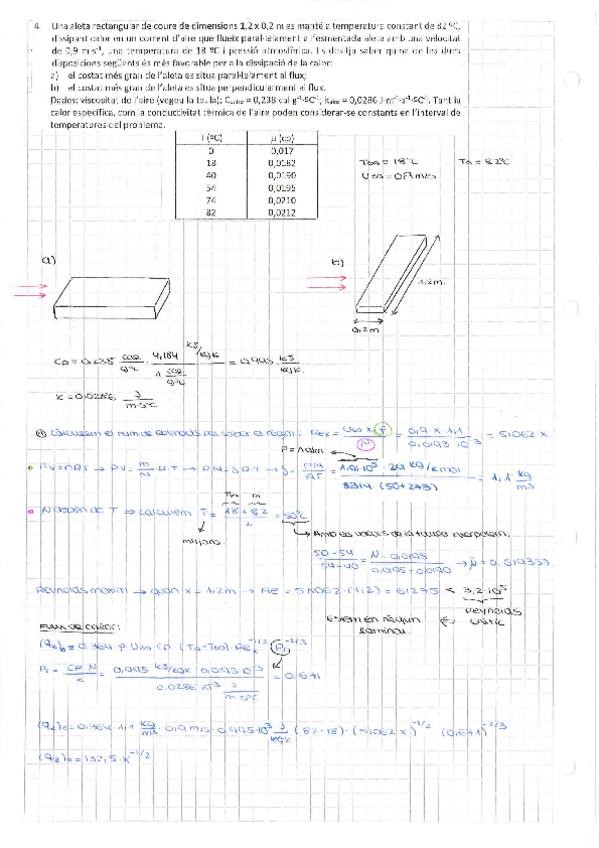 4. Una aleta rectangular de coure de dimensions 1,2 x 0,2 m es manté a temperatura constant de 82 ºC,
dissipant calor en un corrent d'aire que flueix paral·lelament a l'esmentada aleta amb una velocitat
de 0,9 m·s⁻¹, una temperatura de 18 ºC i pressió atmosfèrica. Es desitja saber quina de les dues
disposicions següents és més favorable per a la dissipació de la calor:
a) el costat més gran de l'aleta es situa paral·lelament al flux;
b) el costat més gran de l'aleta es situa perpendicularment al flux.
Dades: viscositat de l'aire (vegeu la taula); = 0,238 cal·g⁻¹·ºC⁻¹; = 0,0286 J·m⁻¹·s⁻¹·ºC⁻¹. Tant la
calor específica, com la conductivitat tèrmica de l'aire poden considerar-se constants en l'interval de
temperatures del problema.
T (ºC) μ (cp)
0 0,017
18 0,0182
40 0,0190
54 0,0195
74 0,0210
82 0,0212
T∞ = 18ºC Ta = 82ºC
U∞ = 0,9 m/s
a)
b)
1,2m
0,2m
Cp = 0,238 cal/gºC · 4,184 kJ/kgK / 1 cal/gºC = 0,995 kJ/kgK
K = 0,0286 J/m·s·ºC
Calculem el num de Reynolds per saber el règim: Rex = = 0,9 x · 1,1 / 0,0193·10⁻³ = 51062 x
P = 1 atm
PV = nRT → PV = m/M · R·T → PM = ρRT → ρ = PM/RT = 1,01·10⁵ · 29 kg/kmol / 8314 (50+273) = 1,1 kg/m³
depèn de T ⇒ calculem T̄ = 18+82 / 2 = 50ºC
mitjana
Amb els valors de la taula interpolem:
50-54 / 54-40 = N - 0,0195 / 0,0195 - 0,0190
Reynolds màxim → quan x = 1,2m → Re = 51062·(1,2) = 61275 < 3,2·10⁵
Reynolds
crític
Estem en règim
laminar
Flux de calor:
(qz)₀ = 0,364 ρ U∞ Cp (Ta-T∞) Rex^-1/2 Pr^-2/3
Pr = Cp N / K = 0,995 kJ/kgK · 0,0193·10⁻³ / 0,0286·10⁻³ J/m·s·ºC = 0,671
(qz)₀ = 0,364 · 1,1 kg/m³ · 0,9 m/s · 0,995·10³ J/kgK · (82-18) · (51062 x)^-1/2 (0,671)^-2/3
(qz)₀ = 132,5·x^-1/2